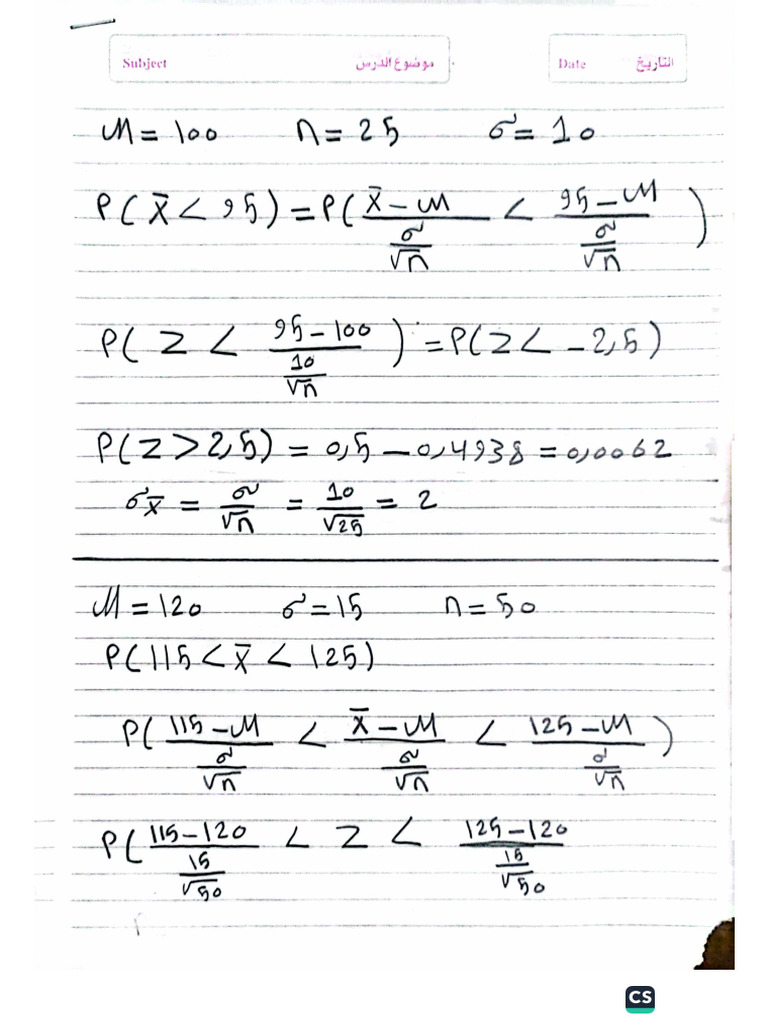 Subject موضوع الدرس Date التاريخ
M = 100 n = 25 σ = 10
P( x̄ < 95) = P( (x̄ - M)/(σ/√n) < (95 - M)/(σ/√n) )
P( Z < (95 - 100)/(10/√n) ) = P(Z < -2,5)
P(Z > 2,5) = 0,5 - 0,4938 = 0,0062
σx̄ = σ/√n = 10/√25 = 2
M = 120 σ = 15 n = 50
P(115 < x̄ < 125)
P( (115 - M)/(σ/√n) < (x̄ - M)/(σ/√n) < (125 - M)/(σ/√n) )
P( (115 - 120)/(15/√50) < Z < (125 - 120)/(15/√50)
CS